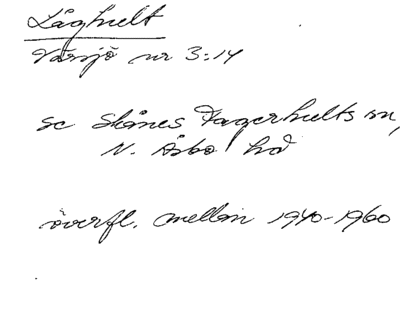 Låghult
Värsjö nr 3:14
sc Skånes Fagerhults sn,
N. Åsbo hd
överfl. mellan 1940-1960